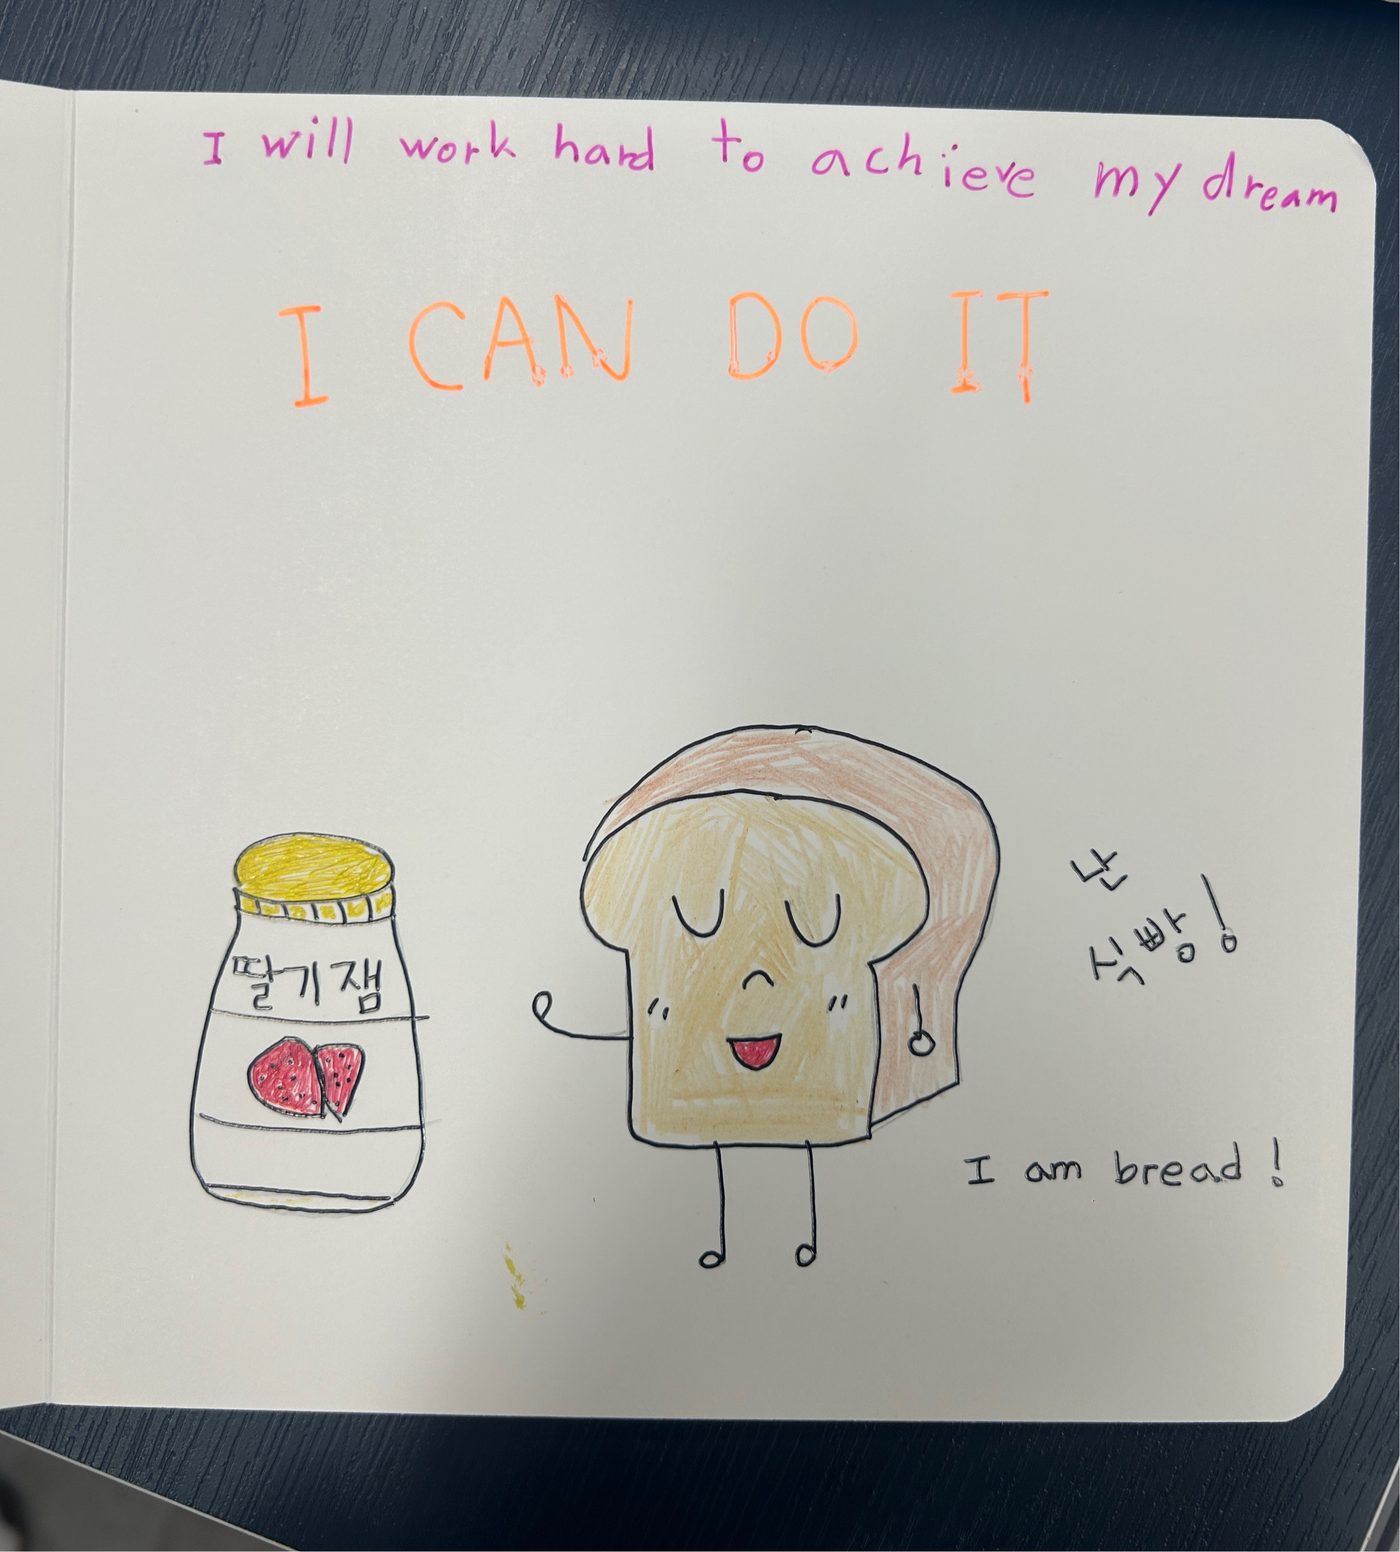 I will work hard to achieve my dream
I CAN DO IT
딸기잼
난
식빵!
I am bread!